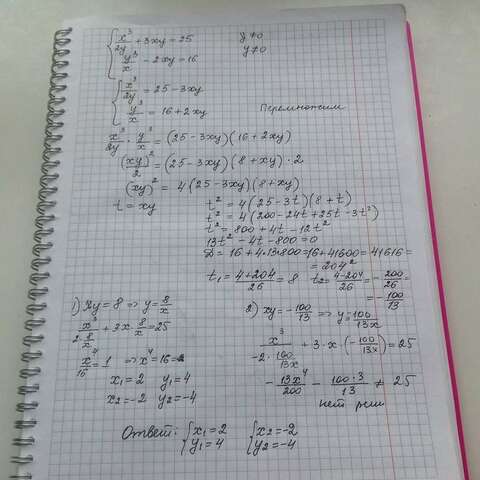 x³/2y + 3xy = 25   y≠0
y³/x − 2xy = 16   y≠0
x³/2y = 25 − 3xy
y³/x = 16 + 2xy   Перемножим
x³/2y · y³/x = (25 − 3xy)(16 + 2xy)
(xy)²/2 = (25 − 3xy)(8 + xy) · 2
(xy)² = 4(25 − 3xy)(8 + xy)
t = xy   t² = 4(25 − 3t)(8 + t)
t² = 4(200 − 24t + 25t − 3t²)
t² = 800 + 4t − 12t²
13t² − 4t − 800 = 0
D = 16 + 4·13·800 = 16 + 41600 = 41616 =
= 204²
t₁ = (4+204)/26 = 8   t₂ = (4−204)/26 = −200/26 =
= −100/13
1) xy = 8 ⇒ y = 8/x
x³/(2·8/x) + 3x·8/x = 25
x⁴/16 = 1 ⇒ x⁴ = 16 =
x₁ = 2   y₁ = 4
x₂ = −2   y₂ = −4
2) xy = −100/13 ⇒ y = 100/13x
x³/(−2·100/13x) + 3·x·(−100/13x) = 25
−13x⁴/200 − 100·3/13 ≠ 25
нет реш
Ответ: { x₁ = 2   { x₂ = −2
y₁ = 4   y₂ = −4